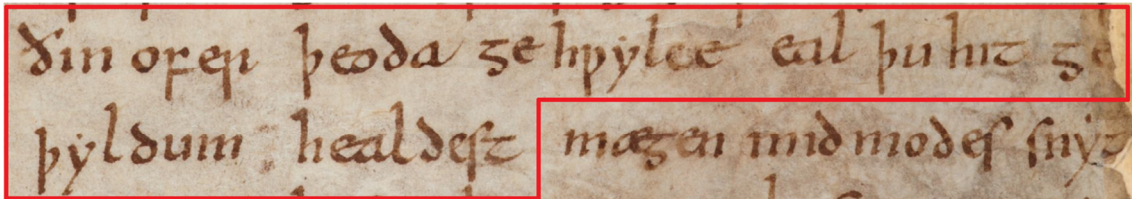 ðin ofer þeoda ge hƿylce eal þu hit ge
þyldum healdest mægen mid modes snyt